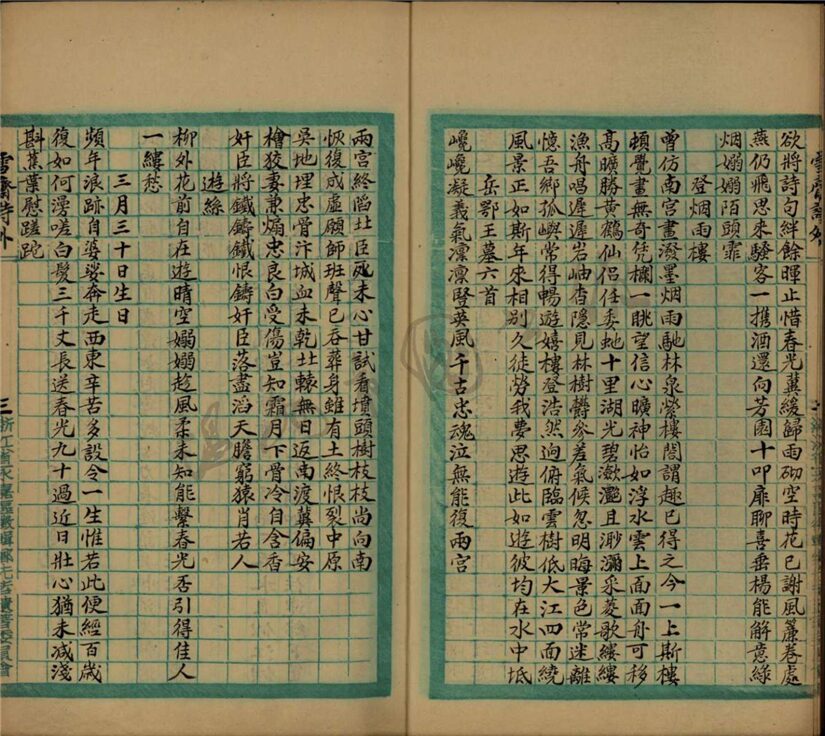 欲將詩句絆餘暉止惜春光冀緩歸雨砌空時花已謝風簾卷處
燕仍飛思来騷客一携酒還向芳園十叩扉聊喜垂楊能解意綠
烟嫋嫋陌頭霏
登烟雨樓
曾仿南宫畫潑墨烟雨馳林泉縈樓閣謂趣已得之今一上斯樓
頓覺畫無奇凭欄一眺望信心曠神怡如浮水雲上面面舟可移
高曠勝黄鶴仙侣任委虵十里湖光碧瀲灔且渺瀰采菱歌縷縷
漁舟唱遲遲岩岫杳隱見林樹欝參差氣候忽明晦景色常迷離
憶吾鄉孤嶼常得暢遊嬉樓登浩然逈俯臨雲樹低大江四面繞
風景正如斯年来相别久徒勞我夢思遊此如遊彼均在水中坻
岳鄂王墓六首
巉巉凝義氣凜凜竪英風千古忠魂泣無能復兩宫
雪齋詩外
兩宫終陷北臣死未心甘試看墳頭樹枝枝尚向南
恢復成虚願師班聲已吞葬身雖有土終恨裂中原
吳地埋忠骨汴城血未乾北轅無日返南渡冀偏安
檜狡妻兼煽忠良白受傷豈知霜月下骨冷自含香
奸臣將鐵鑄鐵恨鑄奸臣落盡滔天膽窮猿肖若人
遊絲
柳外花前自在遊晴空嫋嫋趁風柔未知能繫春光否引得佳人
一縷愁
三月三十日生日
頻年浪跡自婆娑奔走西東辛苦多設令一生惟若此便經百歲
復如何漫嗟白髮三千丈長送春光九十過近日壯心猶未减淺
斟蕉葉慰蹉跎
雪齋詩外
三